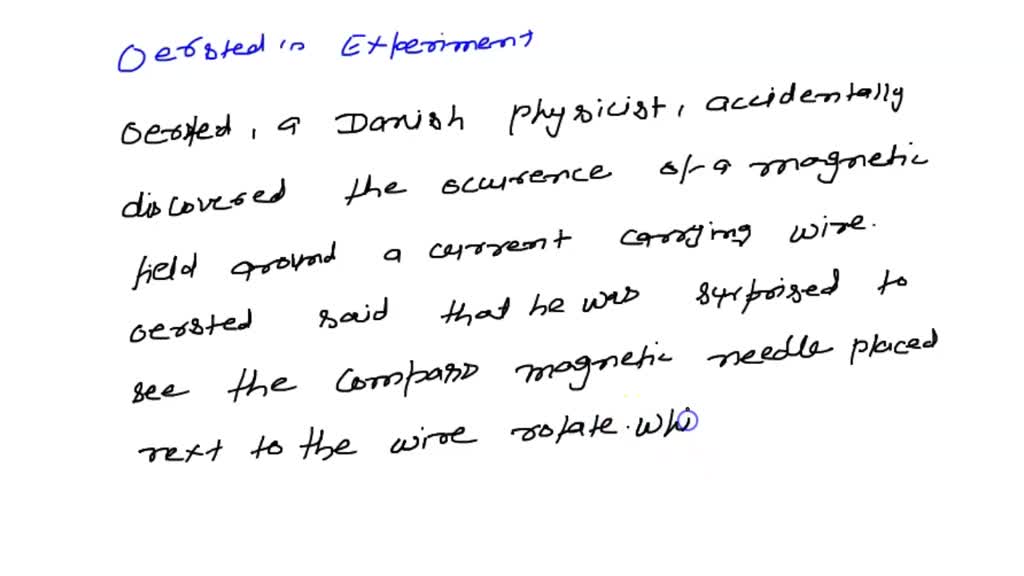 Oersted in Experiment
Oersted, a Danish physicist, accidentally
discovered the occurence of a magnetic
field around a current carrying wire.
Oersted said that he was surprised to
see the compass magnetic needle placed
next to the wire rotate. Whi